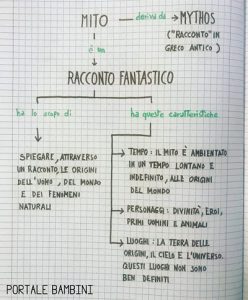 MITO deriva da MYTHOS
("RACCONTO" IN
GRECO ANTICO)
è un
RACCONTO FANTASTICO
ha lo scopo di
ha queste caratteristiche
SPIEGARE, ATTRAVERSO
UN RACCONTO, LE ORIGINI
DELL'UOMO, DEL MONDO
E DEI FENOMENI
NATURALI
TEMPO: IL MITO È AMBIENTATO
IN UN TEMPO LONTANO E
INDEFINITO, ALLE ORIGINI
DEL MONDO
PERSONAGGI: DIVINITÀ, EROI,
PRIMI UOMINI E ANIMALI
LUOGHI: LA TERRA DELLE
ORIGINI, IL CIELO E L'UNIVERSO.
QUESTI LUOGHI NON SONO
BEN DEFINITI
PORTALE BAMBINI